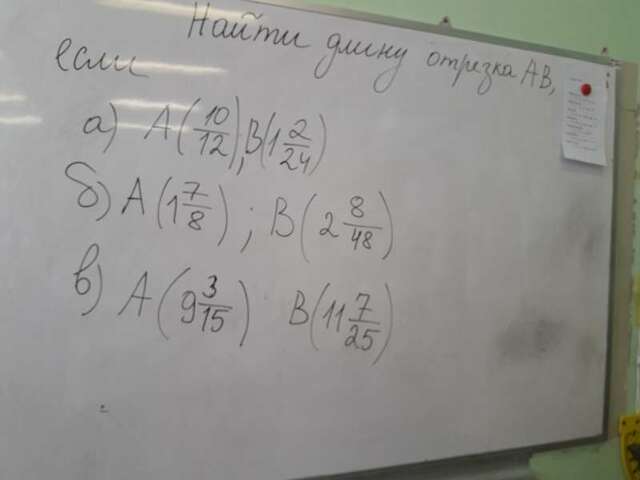 Найти длину отрезка AB,
если
а) A(10/12); B(1 2/24)
б) A(1 7/8); B(2 8/48)
в) A(9 3/15) B(11 7/25)